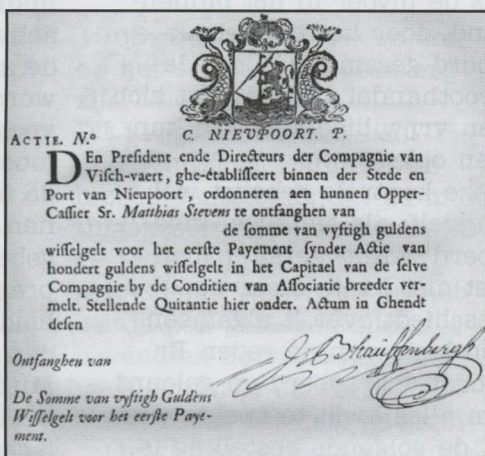 C. NIEUPOORT. P.
ACTIE. N.º
DEn President ende Directeurs der Compagnie van
Visch-vaert, ghe-établisseert binnen der Stede en
Port van Nieupoort, ordonneren aen hunnen Opper-
Cassier Sr. Matthias Stevens te ontfanghen van
de somme van vyftigh guldens
wisselgelt voor het eerste Payement synder Actie van
hondert guldens wisselgelt in het Capitael van de selve
Compagnie by de Conditien van Associatie breeder ver-
melt. Stellende Quitantie hier onder. Actum in Ghendt
desen
Ontfanghen van
De Somme van vyftigh Guldens
Wisselgelt voor het eerste Paye-
ment.